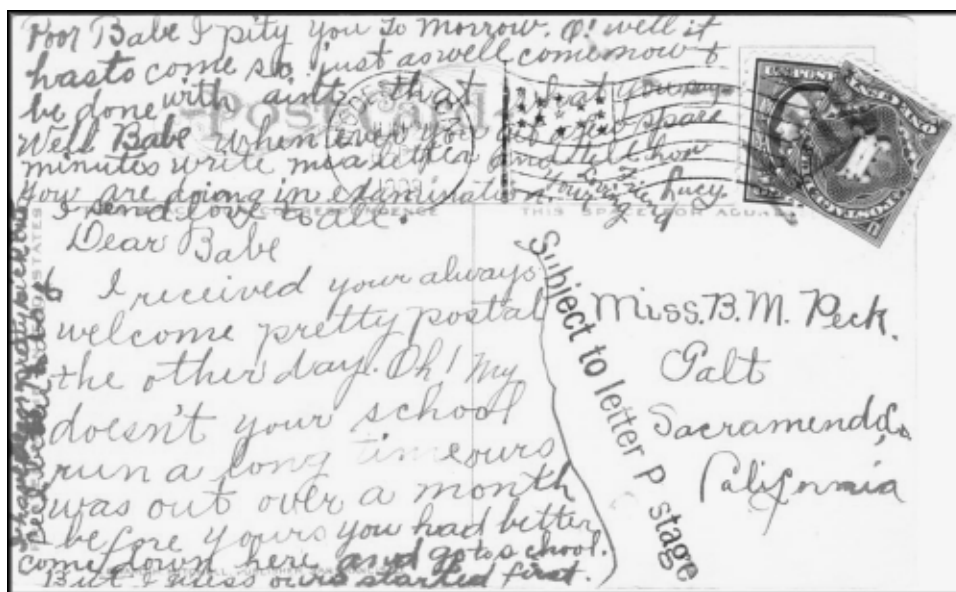 Poor Babe I pity you to morrow. O! well it
has to come so just as well come now &
be done with aint that what you say
Well Babe whenever you get a few spare
minutes write me a letter and tell how
you are doing in examination.
Your loving Lucy.
I send love to all.
Dear Babe
I received your always
welcome pretty postal
the other day. Oh! My
doesn't your school
run a long time ours
was out over a month
before yours you had better
come down here and go to school.
But I guess ours started first.
Post Card
CORRESPONDENCE
THIS SPACE FOR
Subject to letter P stage
Miss. B. M. Peck.
Galt
Sacramendo, Co
California
U.S. POST